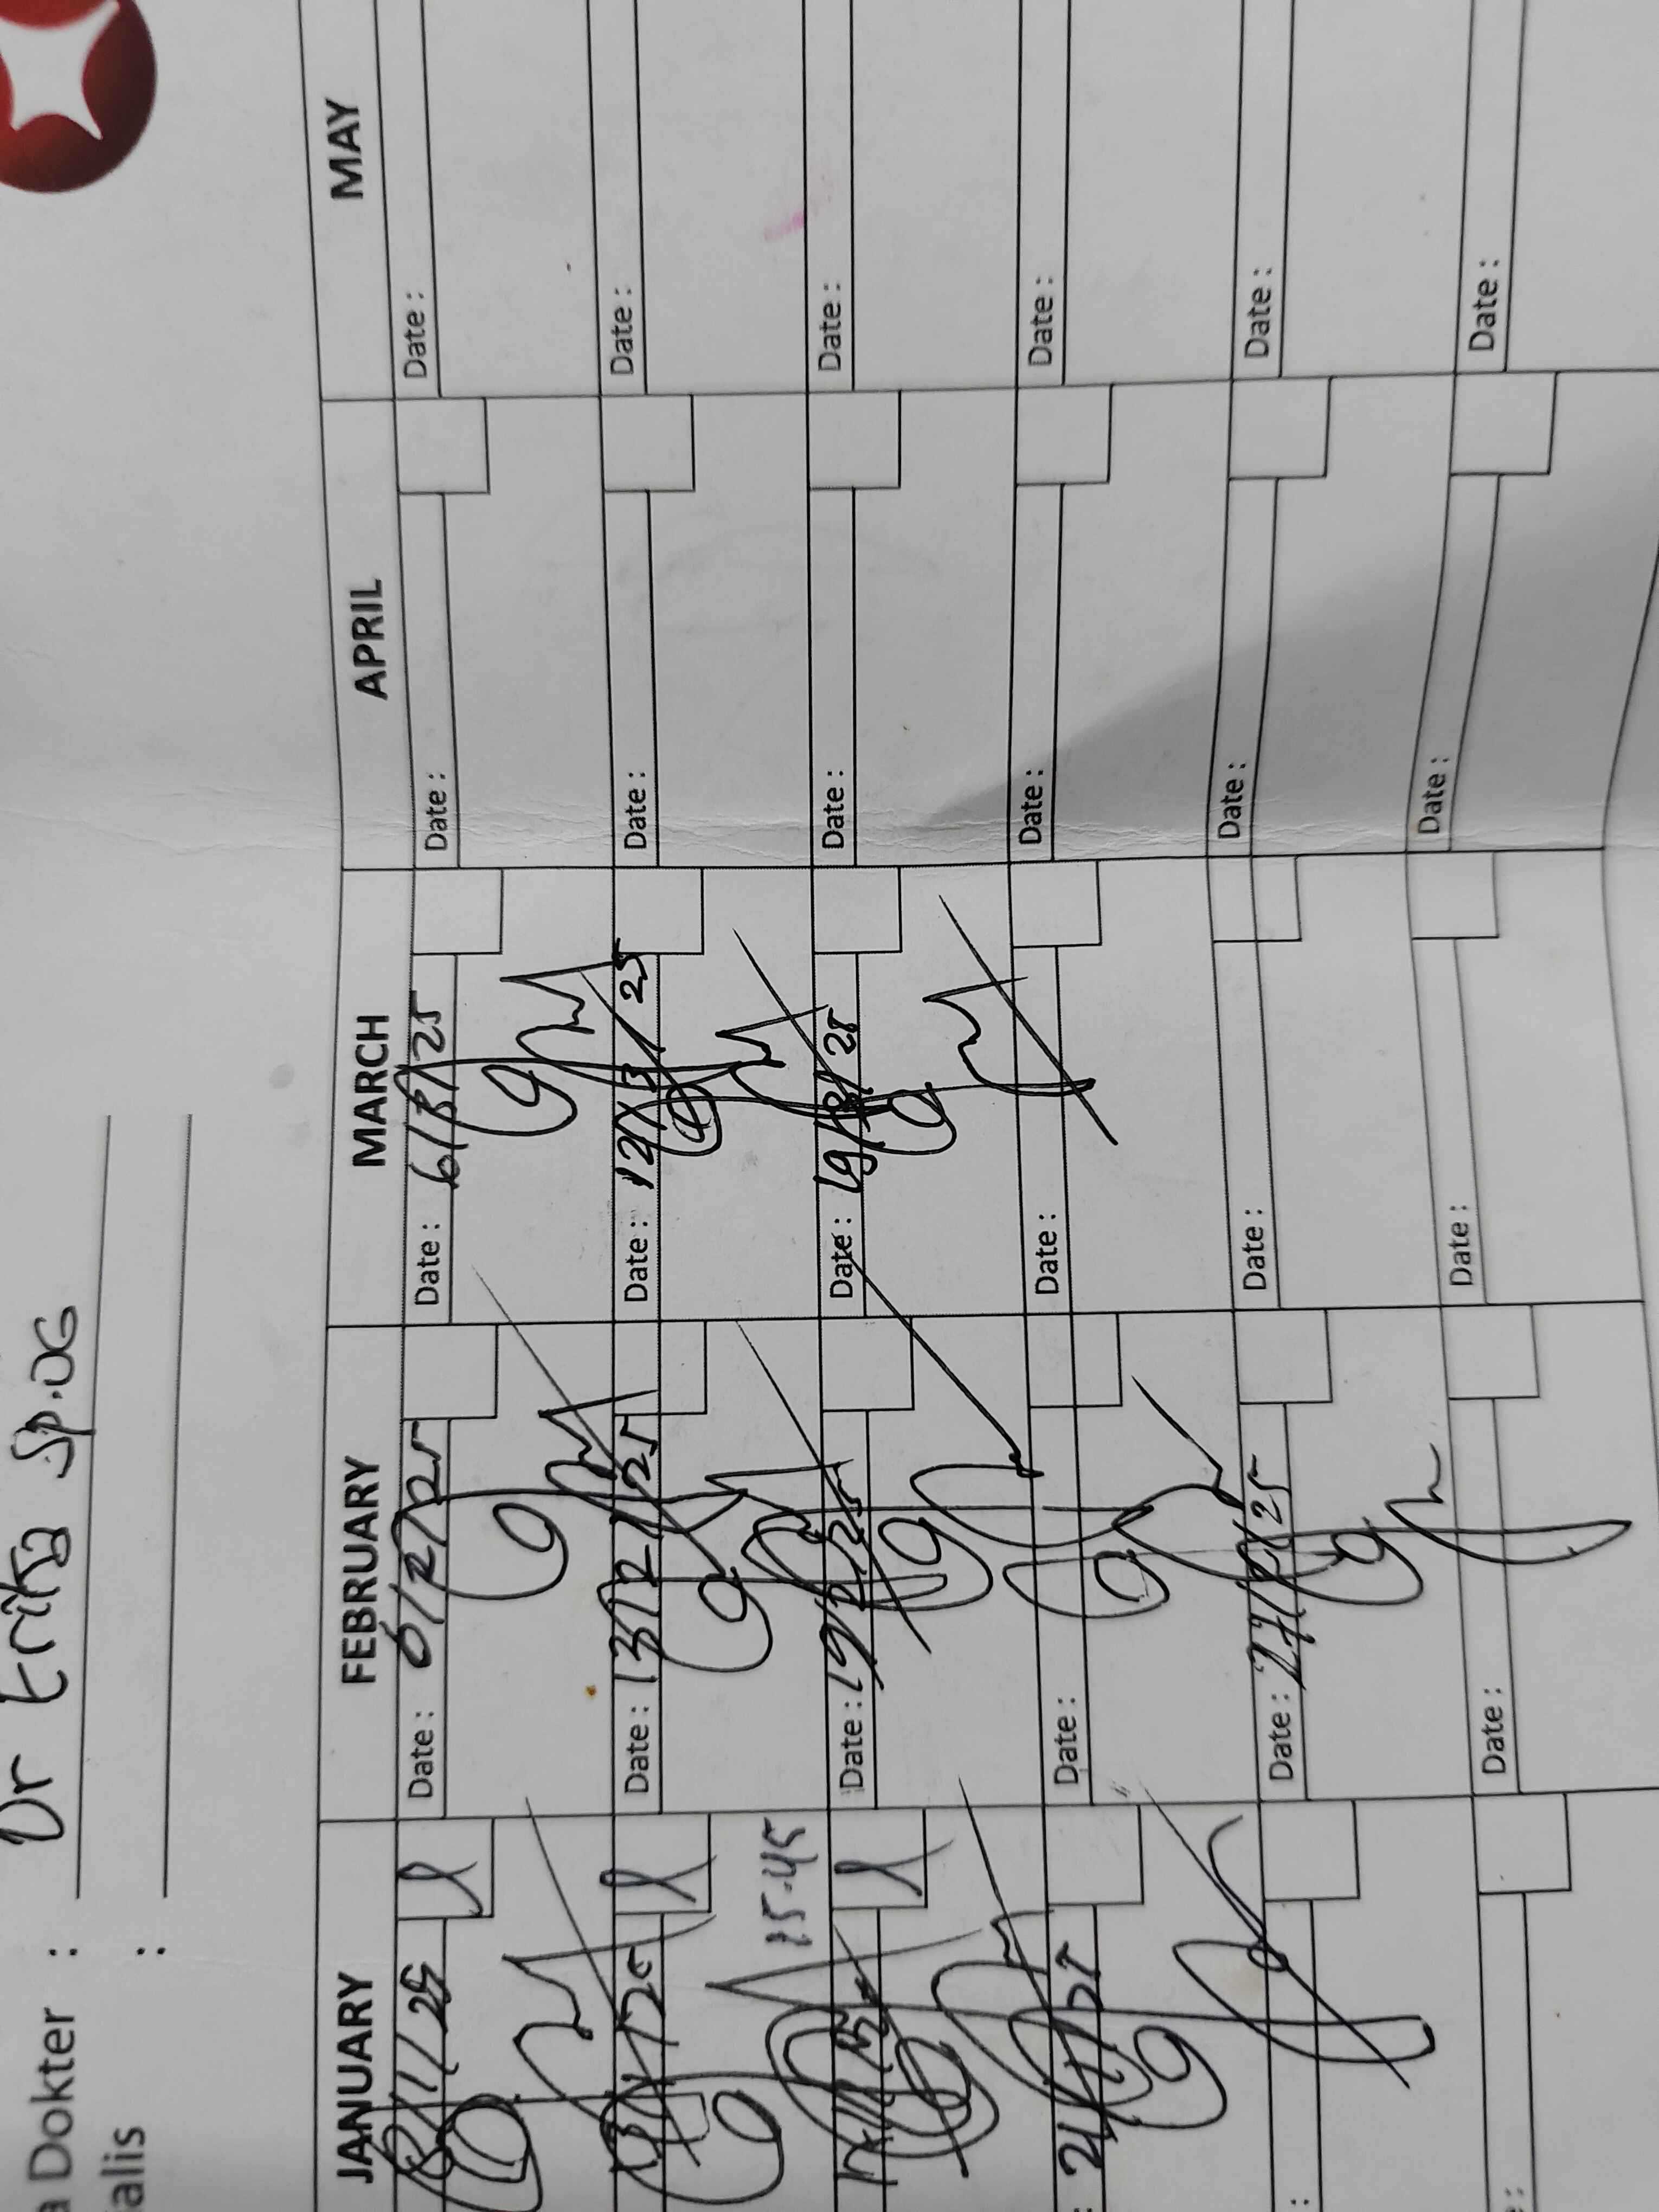 a Dokter : Dr Erika Sp.OG
alis :
JANUARY FEBRUARY MARCH APRIL MAY
8/1/25 Date : 6/2/25 Date : 6/3/25 Date : Date :
13/1/25 Date : 13/2/25 Date : 12/3/25 Date : Date :
15.45
Date : 19/2/25 Date : 19/3/25 Date : Date :
: 21/1/25 Date : Date : Date : Date :
: Date : 27/2/25 Date : Date : Date :
: Date : Date : Date : Date :